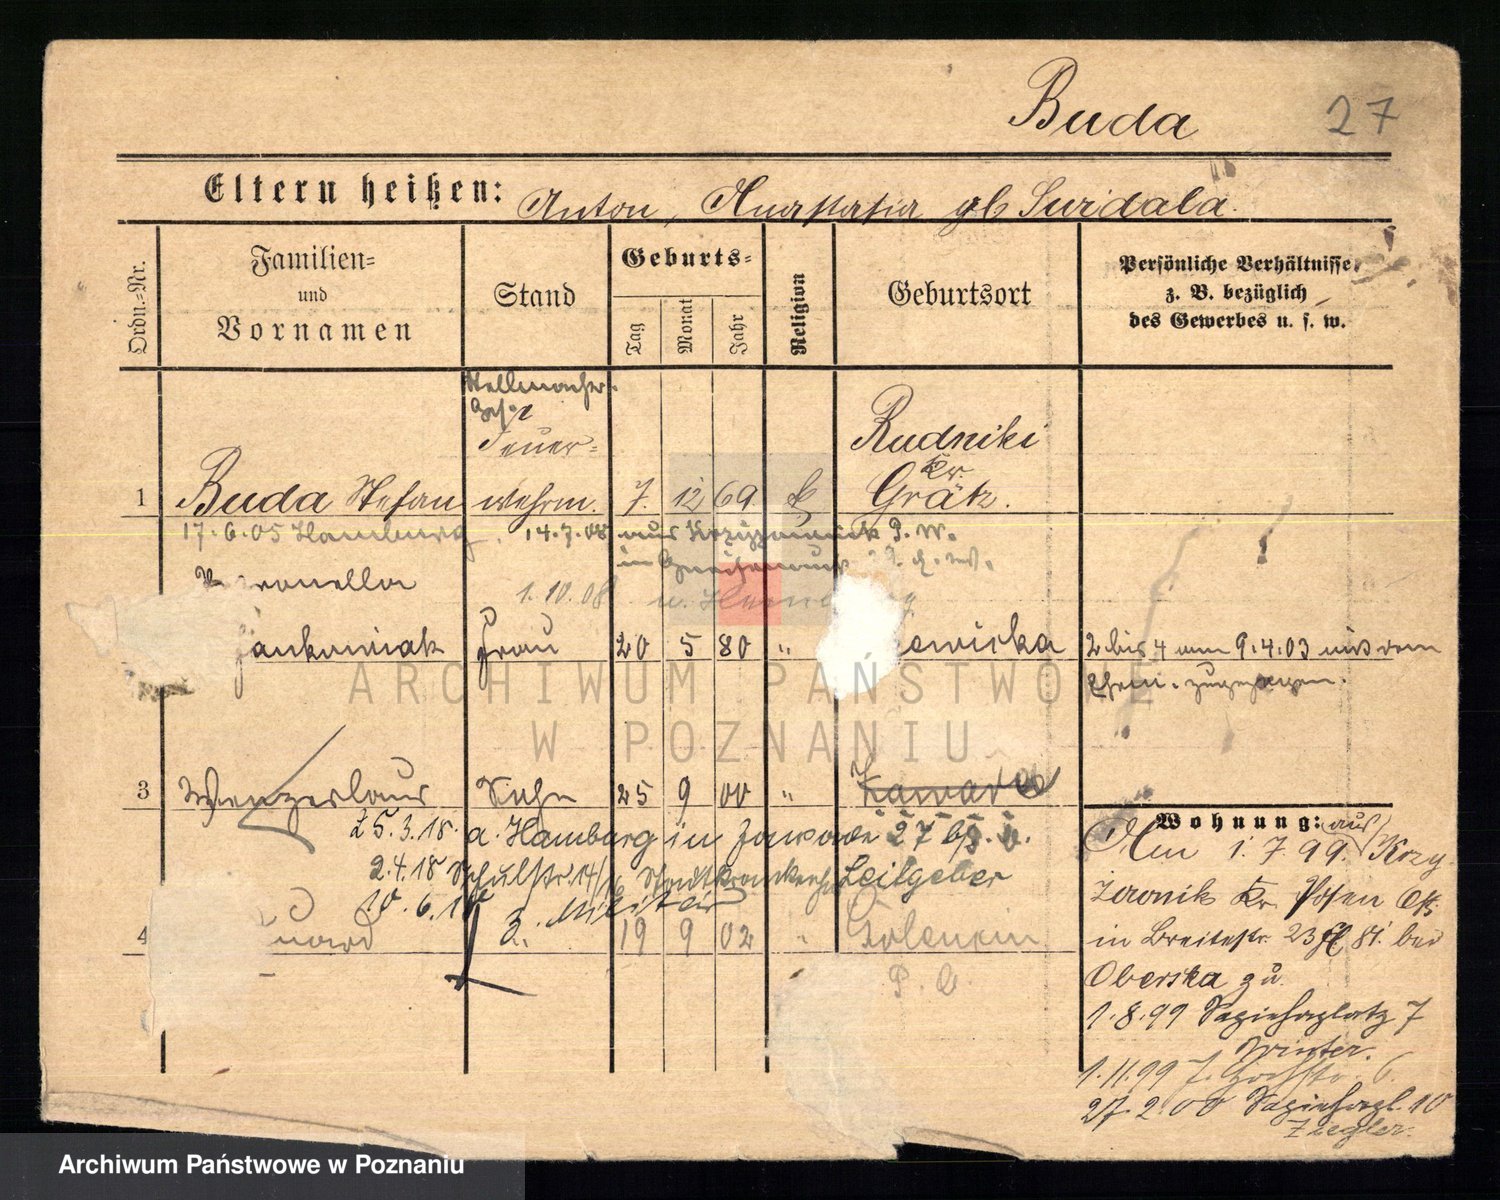 Buda 27
Eltern heißen: Anton, Anastasia gb Suidala.
Ordn.-Nr.
Familien-
und
Vornamen
Stand
Geburts-
Tag
Monat
Jahr
Religion
Geburtsort
Persönliche Verhältnisse
z. B. bezüglich
des Gewerbes u. s. w.
Stellmacher
Ges.
Feuer-
Rudniki
Kr.
1 Buda Stefan wehrm. 7. 12 69 Grätz.
17.6.05 Hamburg. 14.7.08 aus P. W.
in
1.10.08 n.
Jankowiak Frau 20 5 80 "
2 bis 4 am 9.4.03 mit dem
Ehem. zugezogen.
ARCHIWUM PAŃSTWOWE
W POZNANIU
3 Wenzeslaus Sohn 25 9 00 " Zawade
25.3.18. a. Hamburg in Zawade 27 b/
2.4.18 Schulstr. 14/16 Stadtkrankenh. Leitgeber
10.6.18 z. Militär
4 19 9 02 " Golencin
P. O.
Wohnung:
Am 1.7.99. aus Krzy
zownik Kr Posen O/
in Breitestr. 23 bei
Oberska zu
1.8.99 Sapiehaplatz 7
Winter.
1.11.99 6.
27.2.00 Sapiehapl. 10
Ziegler.
Archiwum Państwowe w Poznaniu